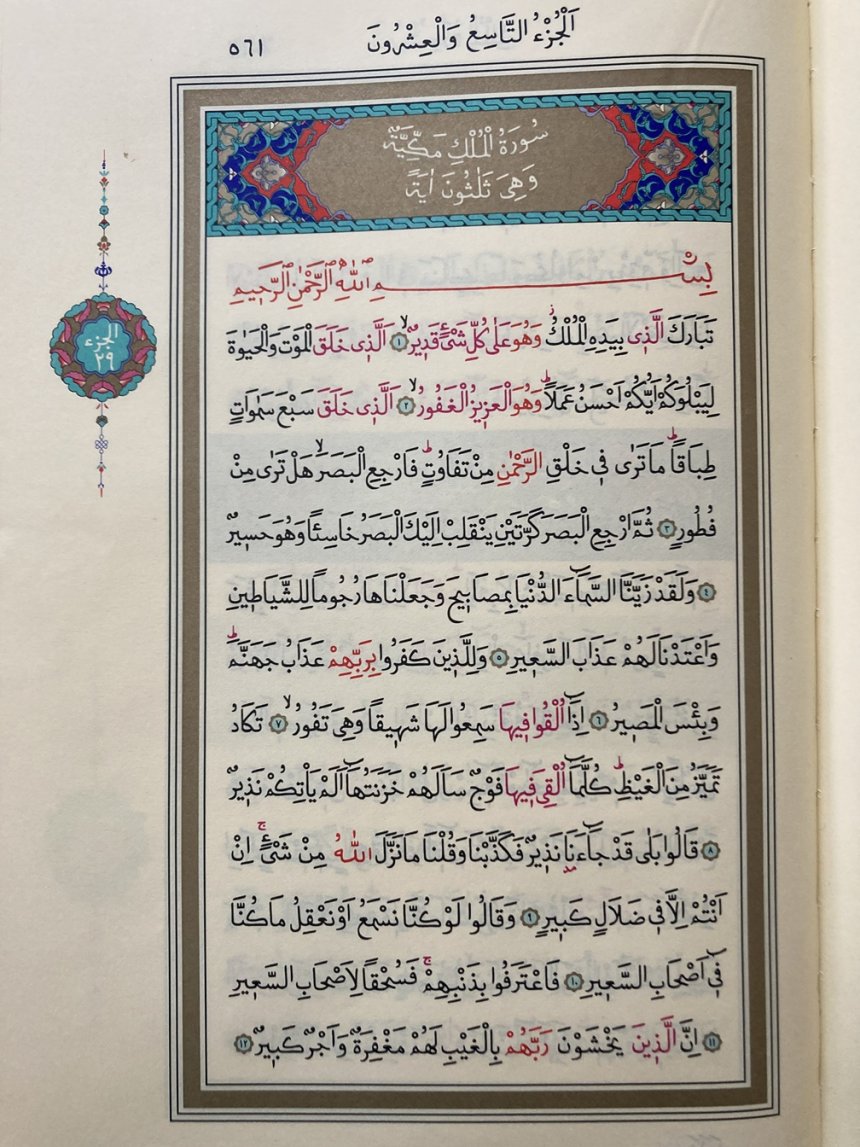 اَلْجُزْءُ التَّاسِعُ وَالْعِشْرُونَ
٥٦١
سُورَةُ الْمُلْكِ مَكِّيَّةٌ
وَهِىَ ثَلٰثُونَ اٰيَةً
بِسْمِ اللّٰهِ الرَّحْمٰنِ الرَّحٖيمِ
تَبَارَكَ الَّذٖى بِيَدِهِ الْمُلْكُ وَهُوَ عَلٰى كُلِّ شَيْءٍ قَدٖيرٌۙ ١ اَلَّذٖى خَلَقَ الْمَوْتَ وَالْحَيٰوةَ
لِيَبْلُوَكُمْ اَيُّكُمْ اَحْسَنُ عَمَلًاؕ وَهُوَ الْعَزٖيزُ الْغَفُورُۙ ٢ اَلَّذٖى خَلَقَ سَبْعَ سَمٰوَاتٍ
طِبَاقًاؕ مَا تَرٰى فٖى خَلْقِ الرَّحْمٰنِ مِنْ تَفَاوُتٍؕ فَارْجِعِ الْبَصَرَۙ هَلْ تَرٰى مِنْ
فُطُورٍ ٣ ثُمَّ ارْجِعِ الْبَصَرَ كَرَّتَيْنِ يَنْقَلِبْ اِلَيْكَ الْبَصَرُ خَاسِئًا وَهُوَ حَسٖيرٌ
٤ وَلَقَدْ زَيَّنَّا السَّمَٓاءَ الدُّنْيَا بِمَصَابٖيحَ وَجَعَلْنَاهَا رُجُومًا لِلشَّيَاطٖينِ
وَاَعْتَدْنَا لَهُمْ عَذَابَ السَّعٖيرِ ٥ وَلِلَّذٖينَ كَفَرُوا بِرَبِّهِمْ عَذَابُ جَهَنَّمَؕ
وَبِئْسَ الْمَصٖيرُ ٦ اِذَٓا اُلْقُوا فٖيهَا سَمِعُوا لَهَا شَهٖيقًا وَهِىَ تَفُورُۙ ٧ تَكَادُ
تَمَيَّزُ مِنَ الْغَيْظِؕ كُلَّمَٓا اُلْقِىَ فٖيهَا فَوْجٌ سَاَلَهُمْ خَزَنَتُهَٓا اَلَمْ يَاْتِكُمْ نَذٖيرٌ
٨ قَالُوا بَلٰى قَدْ جَٓاءَنَا نَذٖيرٌ فَكَذَّبْنَا وَقُلْنَا مَا نَزَّلَ اللّٰهُ مِنْ شَيْءٍۚ اِنْ
اَنْتُمْ اِلَّا فٖى ضَلَالٍ كَبٖيرٍ ٩ وَقَالُوا لَوْ كُنَّا نَسْمَعُ اَوْ نَعْقِلُ مَا كُنَّا
فٖٓى اَصْحَابِ السَّعٖيرِ ١٠ فَاعْتَرَفُوا بِذَنْبِهِمْۚ فَسُحْقًا لِاَصْحَابِ السَّعٖيرِ
١١ اِنَّ الَّذٖينَ يَخْشَوْنَ رَبَّهُمْ بِالْغَيْبِ لَهُمْ مَغْفِرَةٌ وَاَجْرٌ كَبٖيرٌ ١٢
الجزء
٢٩